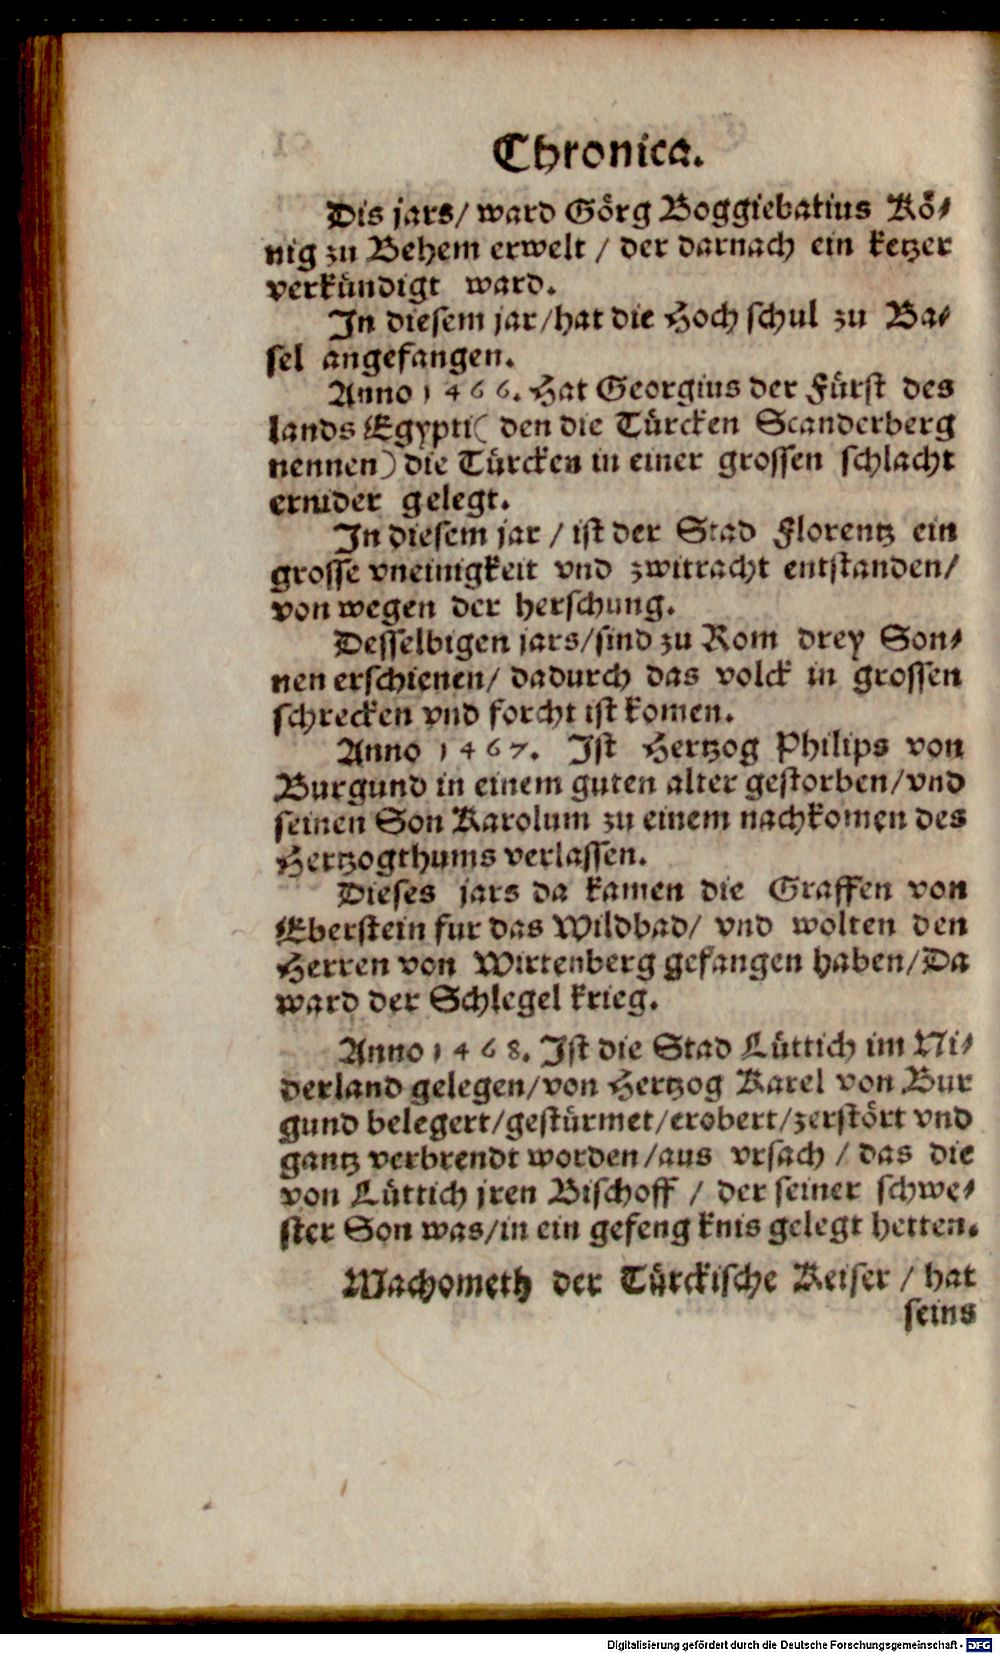 Chronica.
Dis jars/ ward Görg Boggiebatius Kö⸗
nig zu Behem erwelt / der darnach ein ketzer
verkündigt ward.
In diesem jar/hat die Hoch schul zu Ba⸗
sel angefangen.
Anno 1466. Hat Georgius der Fürst des
lands Egypti( den die Türcken Scanderberg
nennen) die Türcken in einer grossen schlacht
ernider gelegt.
In diesem jar / ist der Stad Florentz ein
grosse vneinigkeit vnd zwitracht entstanden/
von wegen der herschung.
Desselbigen jars/sind zu Rom drey Son⸗
nen erschienen/ dadurch das volck in grossen
schrecken vnd forcht ist komen.
Anno 1467. Ist Hertzog Philips von
Burgund in einem guten alter gestorben/vnd
seinen Son Karolum zu einem nachkomen des
Hertzogthums verlassen.
Dieses jars da kamen die Graffen von
Eberstein fur das Wildbad/ vnd wolten den
Herren von Wirtenberg gefangen haben/Da
ward der Schlegel krieg.
Anno 1468. Ist die Stad Lüttich im Ni⸗
derland gelegen/von Hertzog Karel von Bur
gund belegert/gestürmet/erobert/zerstört vnd
gantz verbrendt worden/aus vrsach / das die
von Lüttich jren Bischoff / der seiner schwe⸗
ster Son was/in ein gefeng knis gelegt hetten.
Machometh der Türckische Keiser / hat
seins
Digitalisierung gefördert durch die Deutsche Forschungsgemeinschaft - DFG